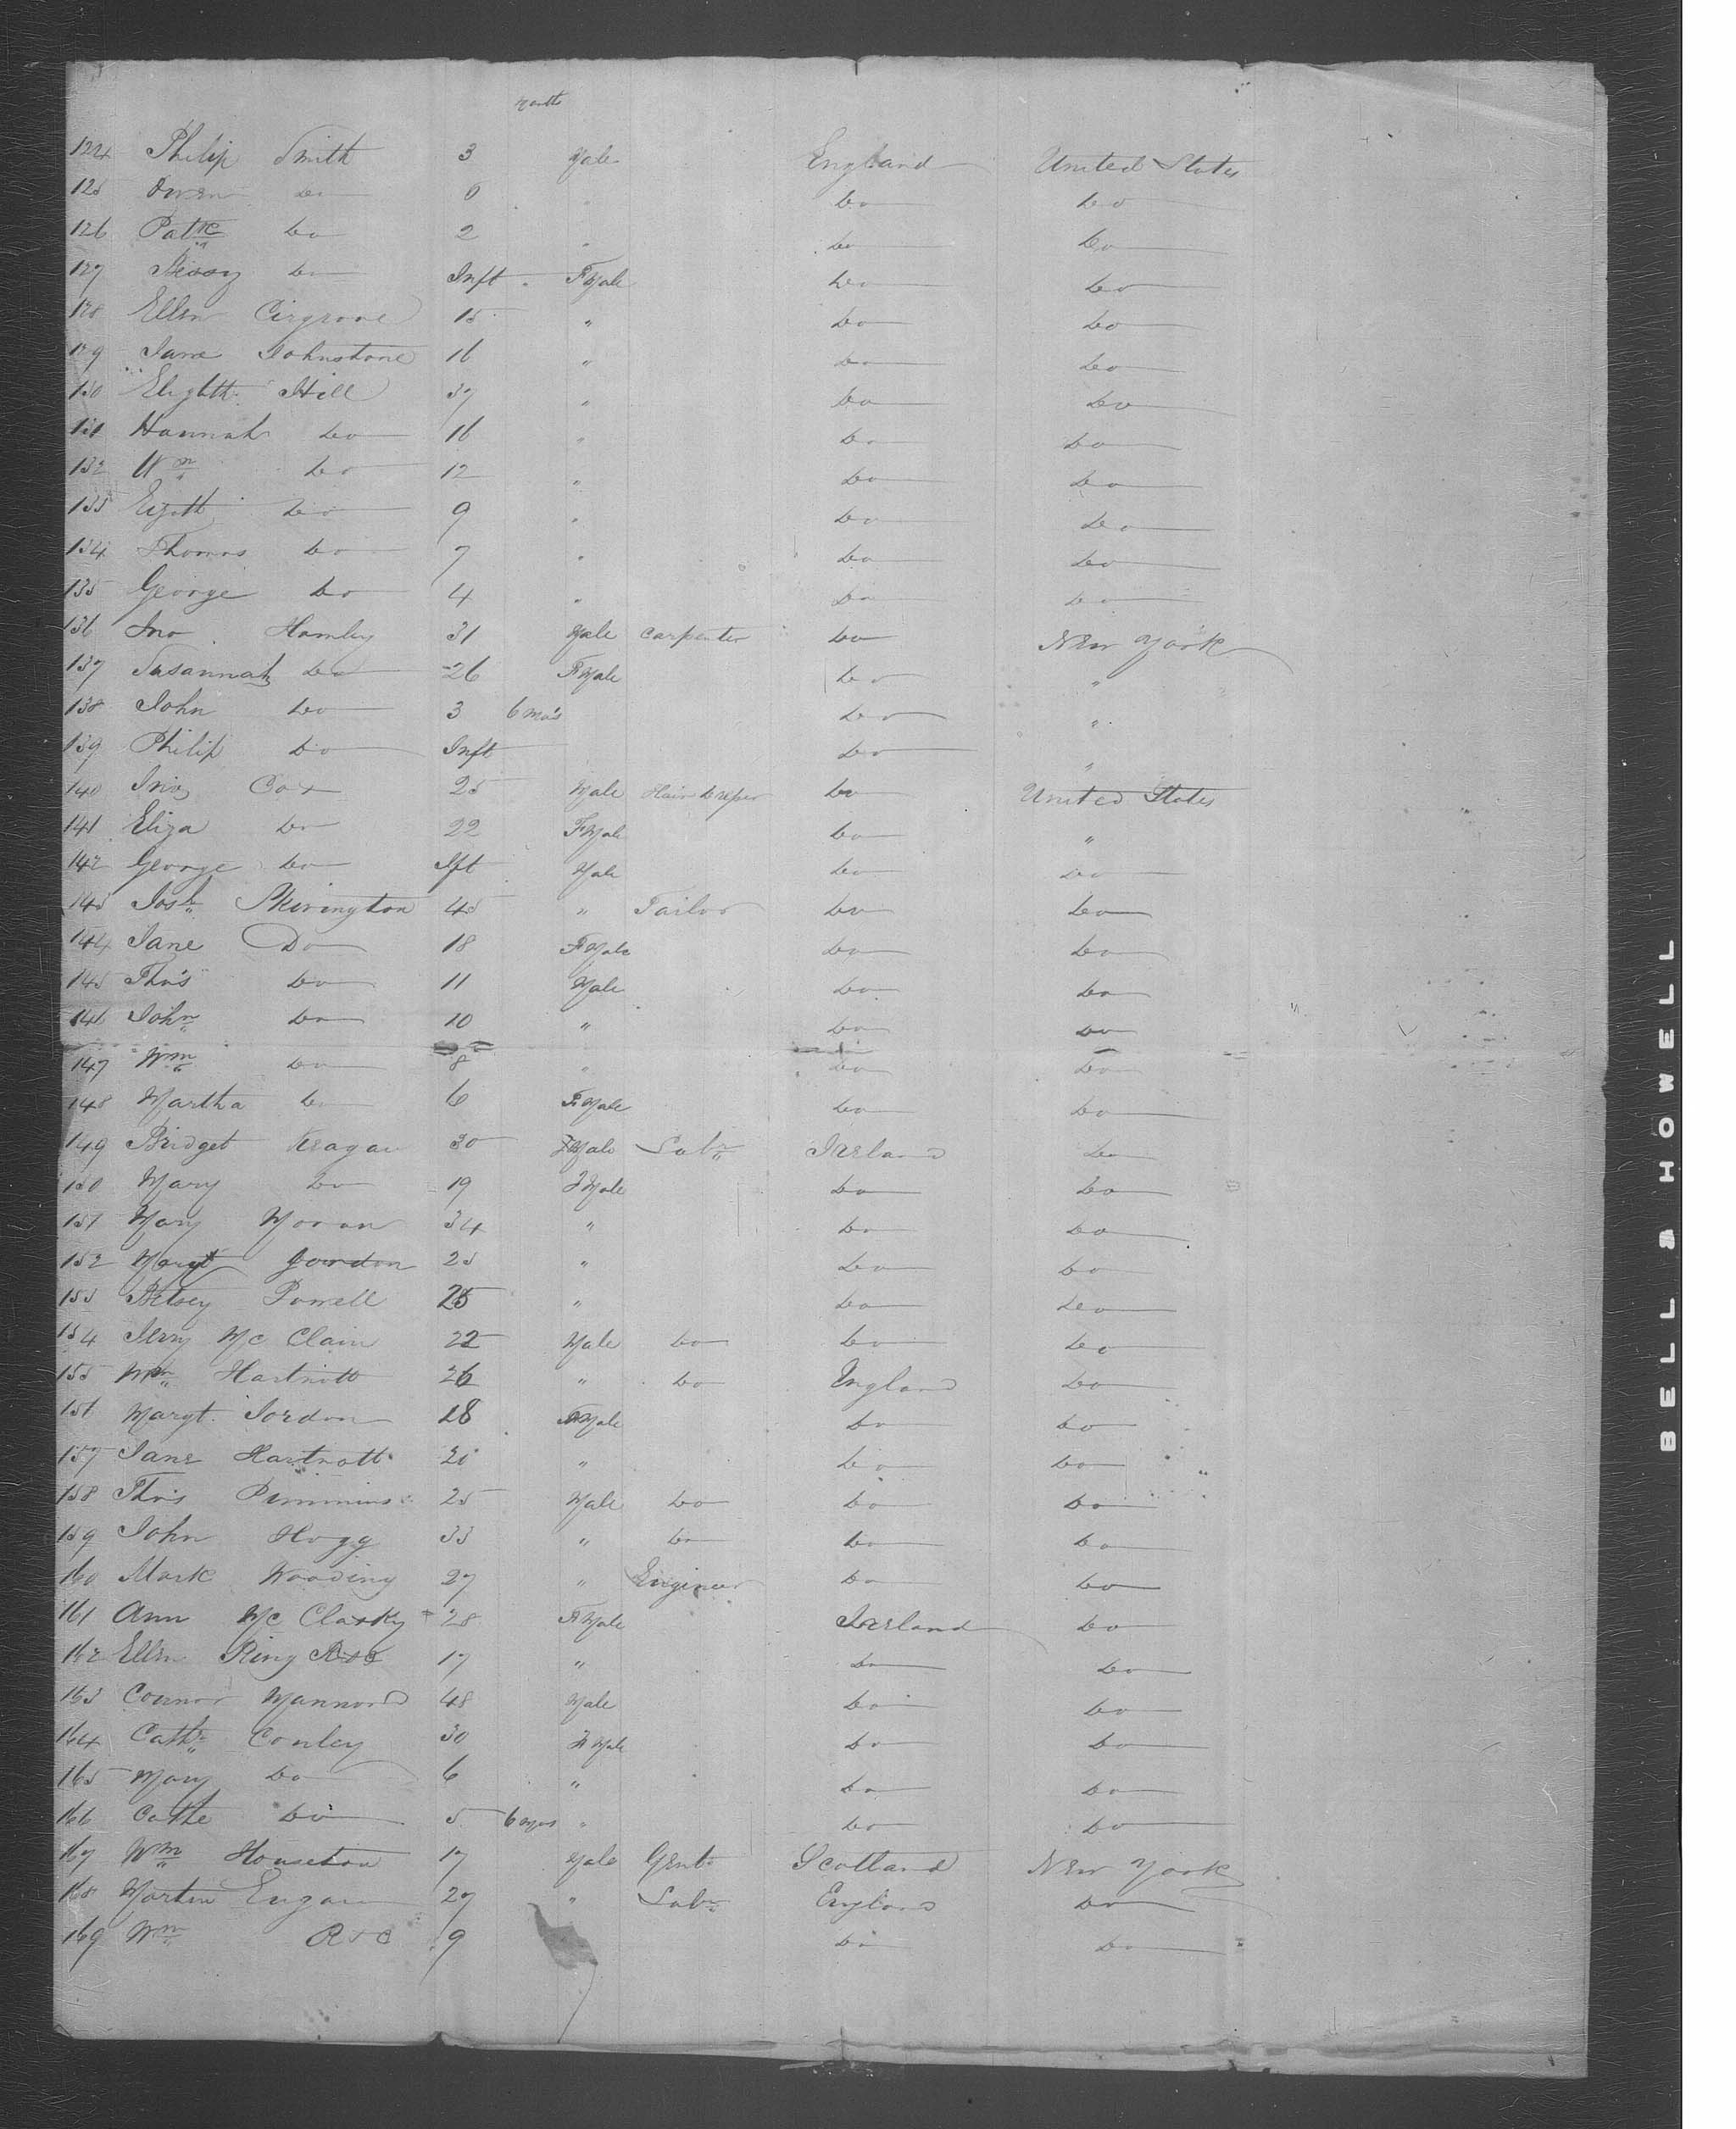 Month
124 Philip Smith 3 Male England United States
125 Owen do 6 " do do
126 Patk do 2 " do do
127 Bessy do Inft FMale do do
128 Ellen 15 " do do
129 Jane Johnstone 16 " do do
130 Elizbth Hill 37 " do do
131 Hannah do 16 " do do
132 Wm do 12 " do do
133 do 9 " do do
134 Thomas do 7 " do do
135 George do 4 " do do
136 Jno Hamley 31 Male Carpenter do New York
137 Susannah do 26 FMale do "
138 John do 3 6 mo's do "
139 Philip do Inft do "
140 Cox 25 Male Hair do United States
141 Eliza do 22 FMale do "
142 George do Ift Male do do
143 Josh Skivington 45 " Tailor do do
144 Jane Do 18 FMale do do
145 Tho's do 11 Male do do
146 John do 10 " do do
147 Wm do 8 " do do
148 Martha do 6 FMale do do
149 Bridget Keagan 30 FMale Labr Ireland do
150 Mary do 19 FMale do do
151 Mary Moran 34 " do do
152 Margt Gordon 25 " do do
153 Betsey Powell 25 " do do
154 Jerry McClain 22 Male do do do
155 Wm Hartnott 26 " do England do
156 Margt Jordon 28 FMale do do
157 Jane Hartnott 20 " do do
158 Tho's Pimmins 25 Male do do do
159 John Hogg 33 " do do do
160 Mark Wooding 27 " Engineer do do
161 Ann McClasky 28 FMale Ireland do
162 Ellen Ring 17 " do do
163 Connor Mannord 48 Male do do
164 Cath Conley 30 FMale do do
165 Mary do 6 " do do
166 Cathe do 5 6 mos " do do
167 Wm Houseton 17 Male Gent Scotland New York
168 Martin Eugan 27 " Labr England do
169 Wm 9 do do
BELL & HOWELL